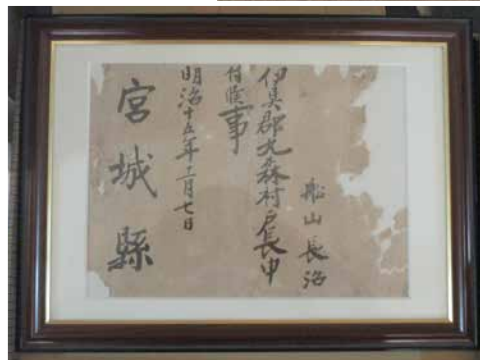 船山長治
伊具郡丸森村戸長申
付候事
明治十五年二月七日
宮城縣